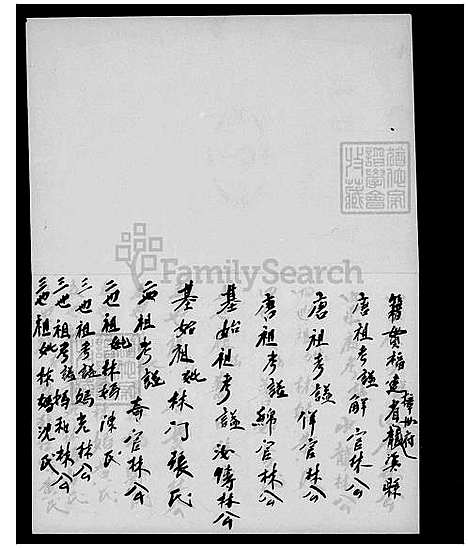 籍貫福建省漳州府龍溪縣
唐祖考諡解官林公
唐祖考諡伴官林公
唐祖考諡綿官林公
基始祖考諡汝傳林公
基始祖妣林门張氏
二世祖考諡奇官林公
二世祖妣林媽陳氏
三世祖考諡媽老林公
三世祖考諡媽私林公
三世祖妣林媽沈氏
FamilySearch